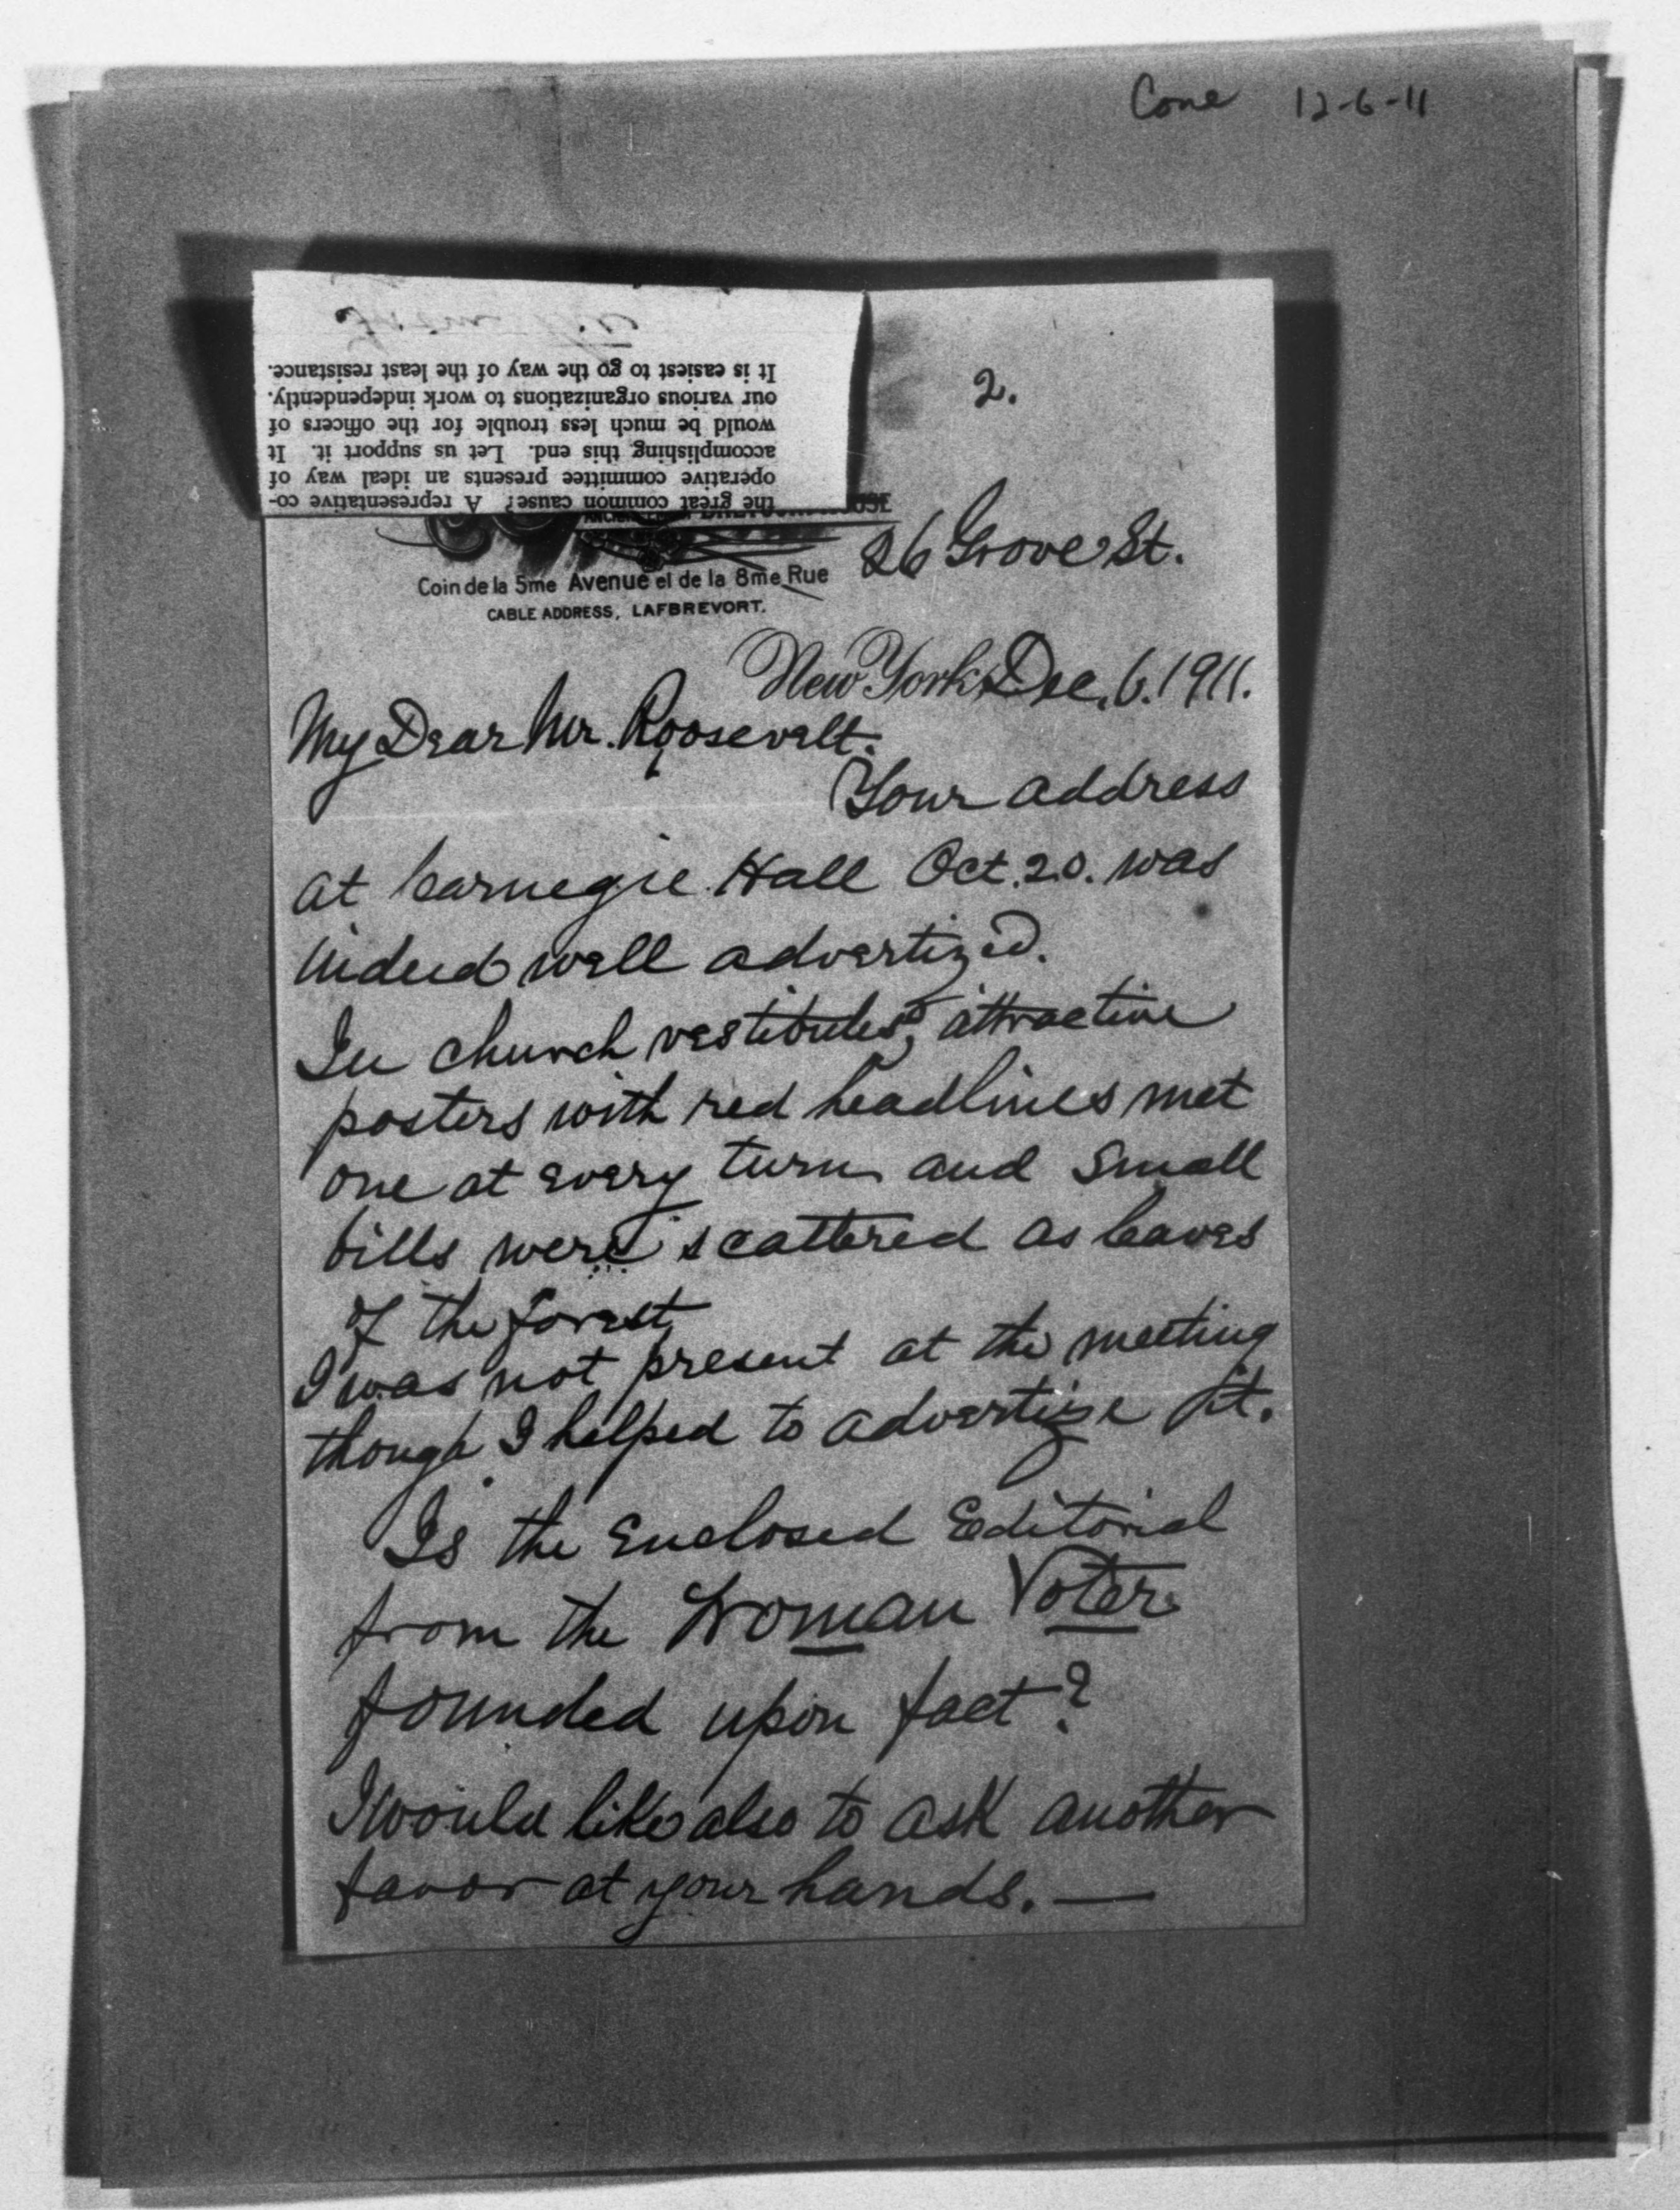 Cone 12-6-11
It is easiest to go the way of the least resistance.
our various organizations to work independently.
would be much less trouble for the officers of
accomplishing this end. Let us support it. It
operative committee presents an ideal way of
the great common cause? A representative co-
2.
26 Grove St.
Coin de la 5me Avenue et de la 8me Rue
CABLE ADDRESS, LAFBREVORT.
New York, Dec. 6. 1911.
My Dear Mr. Roosevelt:
Your address
at Carnegie Hall Oct. 20. was
indeed well advertized.
In church vestibules, attractive
posters with red headlines met
one at every turn and small
bills were scattered as leaves
of the forest
I was not present at the meeting
though I helped to advertize it.
Is the enclosed Editorial
from the Woman Voter
founded upon fact?
I would like also to ask another
favor at your hands. —